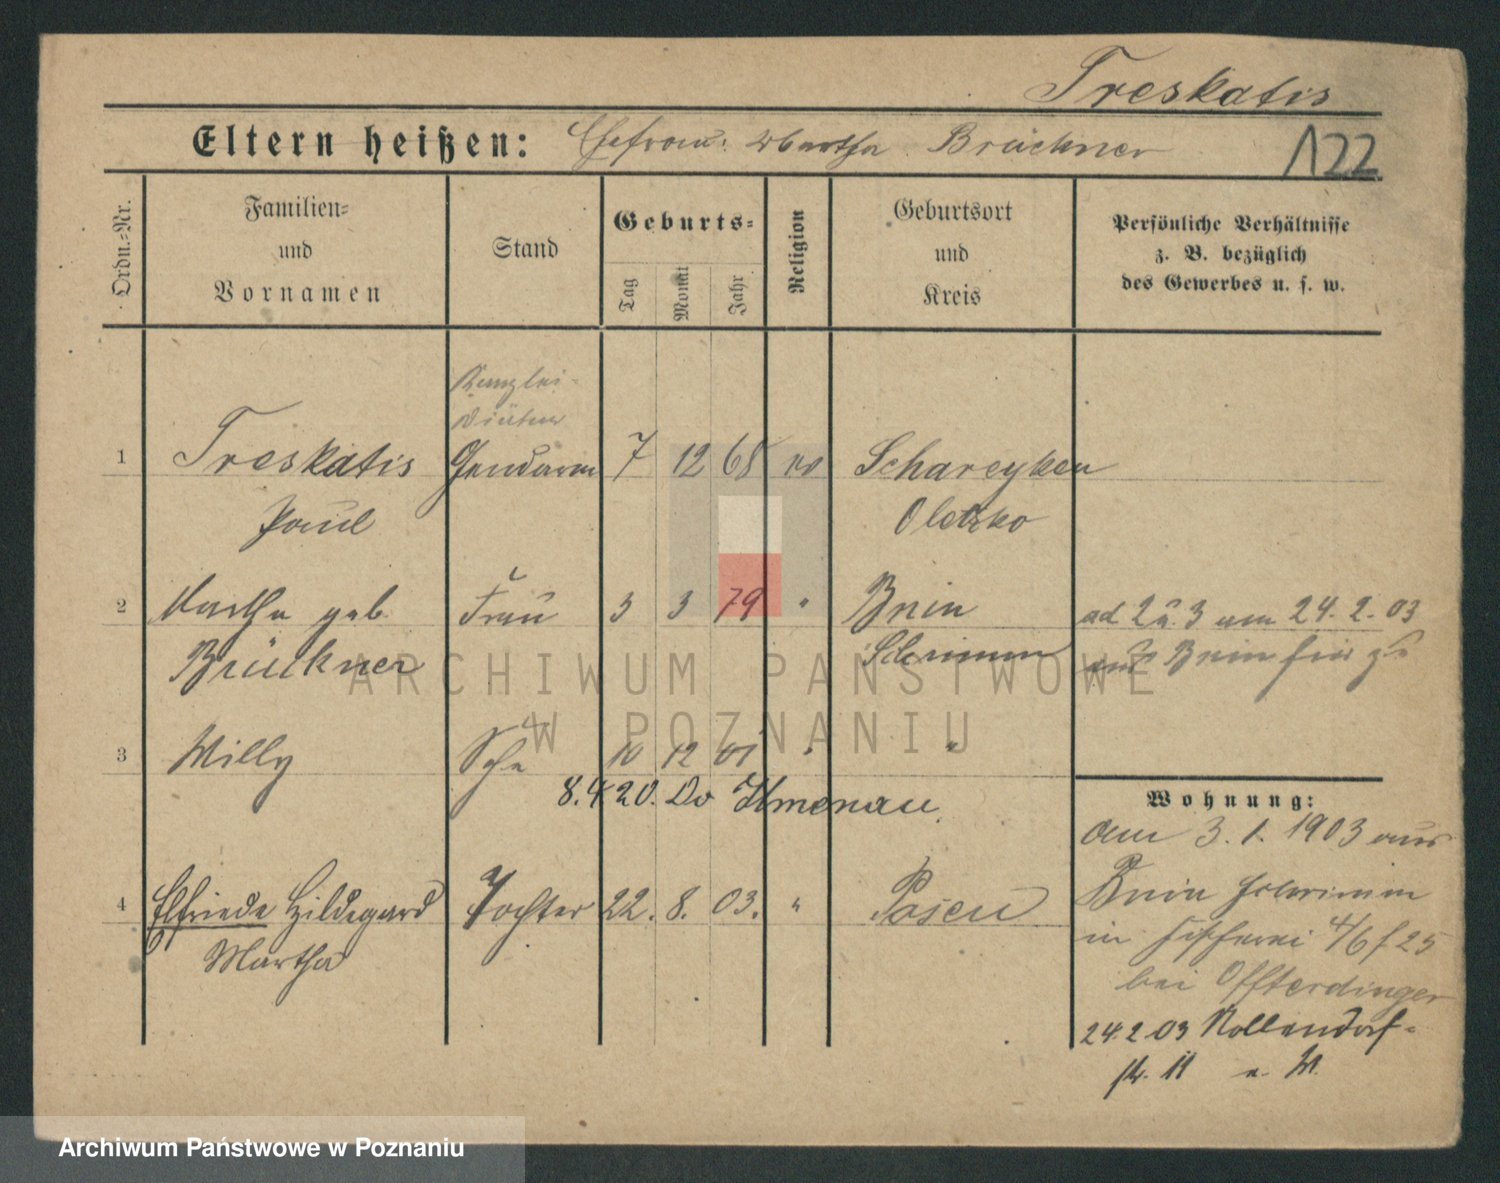 Treskatis
Eltern heißen: Ehefrau: Martha Brückner
122
Ordn.=Nr.
Familien=
und
Vornamen
Stand
Geburts=
Tag
Monat
Jahr
Religion
Geburtsort
und
Kreis
Persönliche Verhältnisse
z. B. bezüglich
des Gewerbes u. s. w.
Kanzlei-
Diätar
1 Treskatis Gendarm 7 12 68 Schareyken
Paul Oletzko
2 Martha geb. Frau 3 3 79 " Bnin ad 2 u. 3 am 24. 2. 03
Brückner Schrimm aus Bnin hier zu
ARCHIWUM PAŃSTWOWE
W POZNANIU
3 Willy Sohn 10 12 01 " "
8.4 20. Do Ilmenau.
Wohnung:
am 3. 1. 1903 aus
4 Elfriede Hildegard Tochter 22. 8. 03. " Posen Bnin Schrimm
Martha in Fischerei 4/6 f 25
bei Offterdinger
24.2.03 Nollendorf-
str. 11
Archiwum Państwowe w Poznaniu